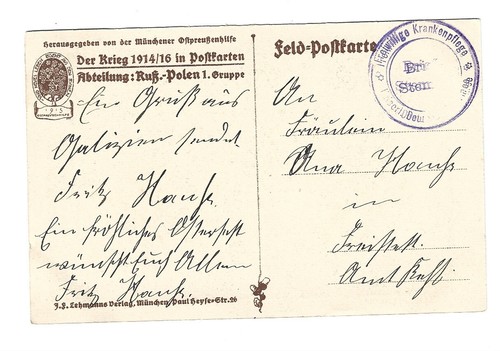 Herausgegeben von der Münchener Ostpreußenhilfe
Der Krieg 1914/16 in Postkarten
Abteilung: Ruß.-Polen 1. Gruppe
Ein Gruß aus
Galizien sendet
Fritz Hauß.
Ein fröhliches Osterfest
wünscht Euch Allen
Fritz Hauß.
J.F. Lehmanns Verlag, München, Paul Heyse-Str. 26
Feld-Postkarte
Freiwillige Krankenpflege
An
Fräulein
Ana Hauß
in
Freistett.
Amt Kehl.